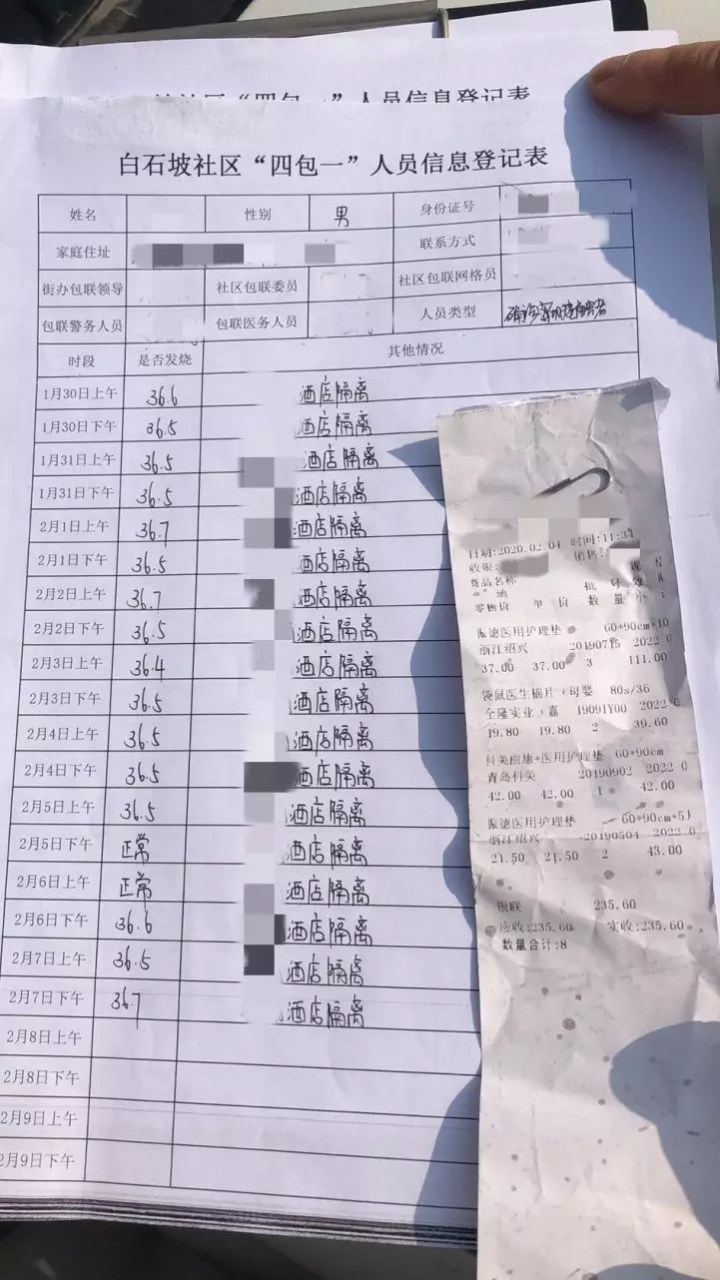 社区“四包一”人员信息登记表
白石坡社区“四包一”人员信息登记表
姓名 性别 男 身份证号
家庭住址 联系方式
街办包联领导 社区包联委员 社区包联网格员
包联警务人员 包联医务人员 人员类型 确诊密切接触者
时段 是否发烧 其他情况
1月30日上午 36.6 酒店隔离
1月30日下午 36.5 酒店隔离
1月31日上午 36.5 酒店隔离
1月31日下午 36.5 酒店隔离
2月1日上午 36.7 酒店隔离
2月1日下午 36.5 酒店隔离
2月2日上午 36.7 酒店隔离
2月2日下午 36.5 酒店隔离
2月3日上午 36.4 酒店隔离
2月3日下午 36.5 酒店隔离
2月4日上午 36.5 酒店隔离
2月4日下午 36.5 酒店隔离
2月5日上午 36.5 酒店隔离
2月5日下午 正常 酒店隔离
2月6日上午 正常 酒店隔离
2月6日下午 36.6 酒店隔离
2月7日上午 36.5 酒店隔离
2月7日下午 36.7 酒店隔离
2月8日上午
2月8日下午
2月9日上午
2月9日下午
日期:2020.02.04 时间:11:34
收银: 销售:
商品名称 批号
产地
零售价 单价 数量 小
振德医用护理垫 60*90cm*10
浙江绍兴 20190715 2022-0
37.00 37.00 3 111.00
袋鼠医生棉片(母婴 80s/36
全隆实业·嘉 19091Y00 2022-0
19.80 19.80 2 39.60
科美丽康*医用护理垫 60*90cm
青岛科美 20190902 2022-0
42.00 42.00 1 42.00
振德医用护理垫 60*90cm*5)
浙江绍兴 20190504 2022-0
21.50 21.50 2 43.00
银联 235.60
应收:235.60 实收:235.60
数量合计:8